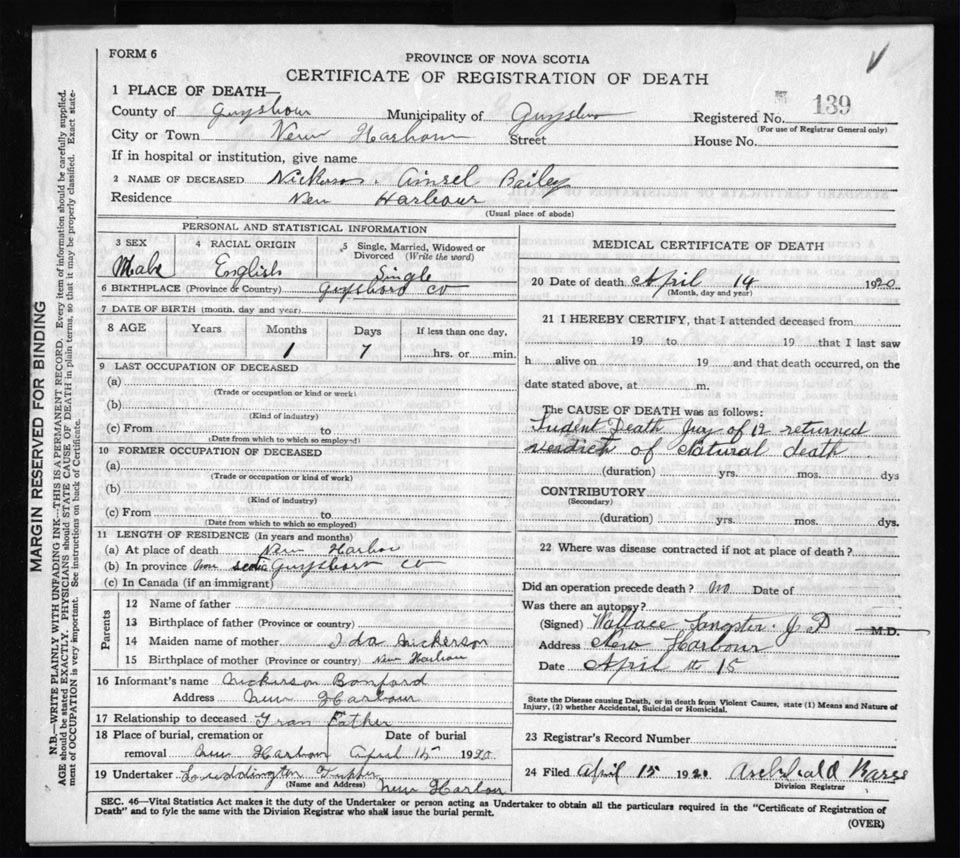 FORM 6
PROVINCE OF NOVA SCOTIA
CERTIFICATE OF REGISTRATION OF DEATH
1 PLACE OF DEATH—
County of Guysboro Municipality of Guysboro Registered No. 139
(For use of Registrar General only)
City or Town New Harbour Street House No.
If in hospital or institution, give name
2 NAME OF DECEASED Nickerson. Ainsel Bailey
Residence New Harbour
(Usual place of abode)
PERSONAL AND STATISTICAL INFORMATION
3 SEX 4 RACIAL ORIGIN 5 Single, Married, Widowed or Divorced (Write the word)
Male English Single
6 BIRTHPLACE (Province or Country) Guysboro Co
7 DATE OF BIRTH (month, day and year)
8 AGE Years Months Days If less than one day,
1 7 hrs. or min.
9 LAST OCCUPATION OF DECEASED
(a)
(Trade or occupation or kind or work)
(b)
(Kind of industry)
(c) From to
(Date from which to which so employed)
10 FORMER OCCUPATION OF DECEASED
(a)
(Trade or occupation or kind of work)
(b)
(Kind of industry)
(c) From to
(Date from which to which so employed)
11 LENGTH OF RESIDENCE (In years and months)
(a) At place of death New Harbor
(b) In province Nova scotia Guysboro Co
(c) In Canada (if an immigrant)
Parents
12 Name of father
13 Birthplace of father (Province or country)
14 Maiden name of mother Ida Nickerson
15 Birthplace of mother (Province or country) New Harbour
16 Informant's name Nickerson
Address New Harbour
17 Relationship to deceased Gran Father
18 Place of burial, cremation or removal Date of burial
New Harbour April 15 1920
19 Undertaker Luddington
(Name and Address) New Harbor
MEDICAL CERTIFICATE OF DEATH
20 Date of death April 14 1920
(Month, day and year)
21 I HEREBY CERTIFY, that I attended deceased from
19 to 19 that I last saw
h alive on 19 and that death occurred, on the
date stated above, at m.
The CAUSE OF DEATH was as follows:
Sudint Death Jury of 12 returned
verdict of Natural death
(duration) yrs. mos. dys
CONTRIBUTORY
(Secondary)
(duration) yrs. mos. dys.
22 Where was disease contracted if not at place of death?
Did an operation precede death? no Date of
Was there an autopsy?
(Signed) Wallace Sangster. J P M.D.
Address New Harbour
Date April th 15
State the Disease causing Death, or in death from Violent Causes, state (1) Means and Nature of
Injury, (2) whether Accidental, Suicidal or Homicidal.
23 Registrar's Record Number
24 Filed April 15 1920 Archibald
Division Registrar
SEC. 46—Vital Statistics Act makes it the duty of the Undertaker or person acting as Undertaker to obtain all the particulars required in the "Certificate of Registration of
Death" and to fyle the same with the Division Registrar who shall issue the burial permit.
(OVER)
MARGIN RESERVED FOR BINDING
N.B.—WRITE PLAINLY WITH UNFADING INK—THIS IS A PERMANENT RECORD. Every item of information should be carefully supplied.
AGE should be stated EXACTLY. PHYSICIANS should STATE CAUSE OF DEATH in plain terms, so that it may be properly classified. Exact statement
of OCCUPATION is very important. See instructions on back of Certificate.